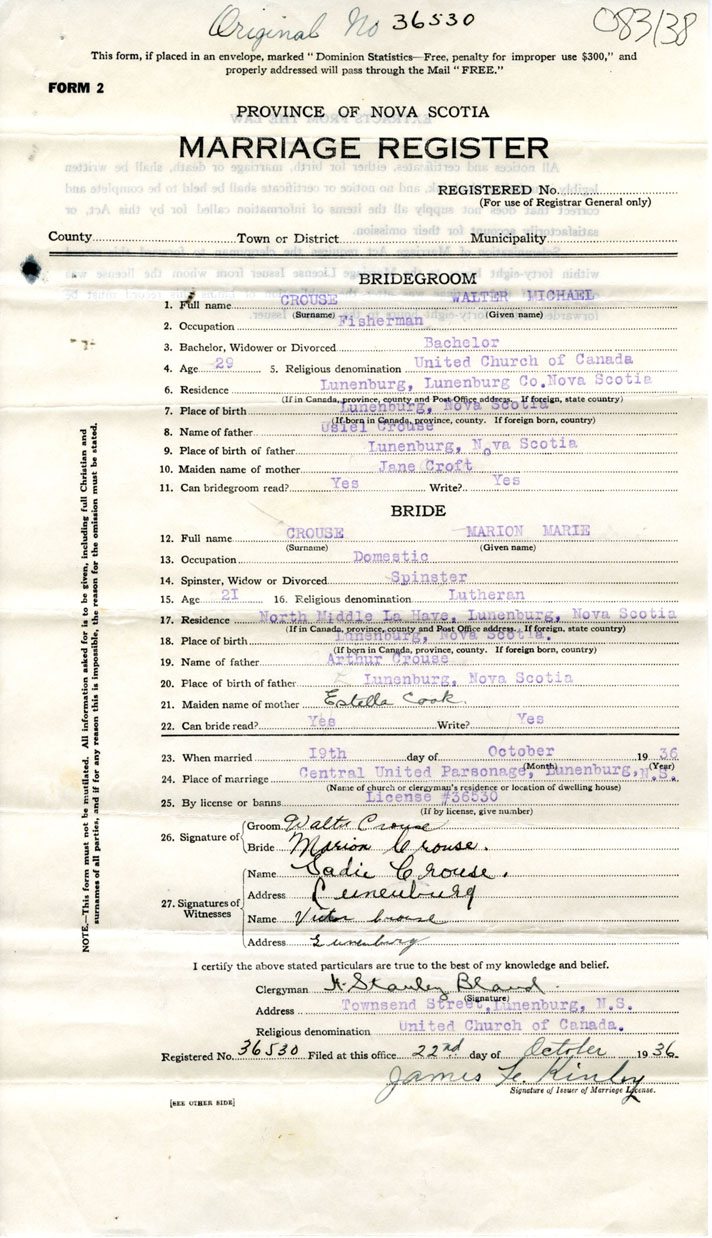 Original No 36530 083/38
This form, if placed in an envelope, marked "Dominion Statistics—Free, penalty for improper use $300," and
properly addressed will pass through the Mail "FREE."
FORM 2
PROVINCE OF NOVA SCOTIA
MARRIAGE REGISTER
REGISTERED No.
(For use of Registrar General only)
County Town or District Municipality
BRIDEGROOM
1. Full name CROUSE WALTER MICHAEL
(Surname) (Given name)
2. Occupation Fisherman
3. Bachelor, Widower or Divorced Bachelor
4. Age 29 5. Religious denomination United Church of Canada
6. Residence Lunenburg, Lunenburg Co.Nova Scotia
(If in Canada, province, county and Post Office address. If foreign, state country)
7. Place of birth Lunenburg, Nova Scotia
(If born in Canada, province, county. If foreign born, country)
8. Name of father Usiel Crouse
9. Place of birth of father Lunenburg, Nova Scotia
10. Maiden name of mother Jane Croft
11. Can bridegroom read? Yes Write? Yes
BRIDE
12. Full name CROUSE MARION MARIE
(Surname) (Given name)
13. Occupation Domestic
14. Spinster, Widow or Divorced Spinster
15. Age 2I 16. Religious denomination Lutheran
17. Residence North Middle La Have, Lunenburg, Nova Scotia
(If in Canada, province, county and Post Office address. If foreign, state country)
18. Place of birth Lunenburg, Nova Scotia.
(If born in Canada, province, county. If foreign born, country)
19. Name of father Arthur Crouse
20. Place of birth of father Lunenburg, Nova Scotia
21. Maiden name of mother Estella Cook.
22. Can bride read? Yes Write? Yes
23. When married I9th day of October 19 36
(Month) (Year)
24. Place of marriage Central United Parsonage, Lunenburg, N.S.
(Name of church or clergyman's residence or location of dwelling house)
25. By license or banns License #36530
(If by license, give number)
26. Signature of Groom Walter Crouse
Bride Marion Crouse.
27. Signatures of Witnesses Name Sadie Crouse.
Address Lunenburg
Name Victor Crouse
Address Lunenburg
I certify the above stated particulars are true to the best of my knowledge and belief.
Clergyman H. Stanley Bland.
(Signature)
Address Townsend Street, Lunenburg, N.S.
Religious denomination United Church of Canada.
Registered No. 36530 Filed at this office 22nd day of October 19 36.
James Kinley
Signature of Issuer of Marriage License.
[SEE OTHER SIDE]
NOTE.—This form must not be mutilated. All information asked for is to be given, including full Christian and
surnames of all parties, and if for any reason this is impossible, the reason for the omission must be stated.